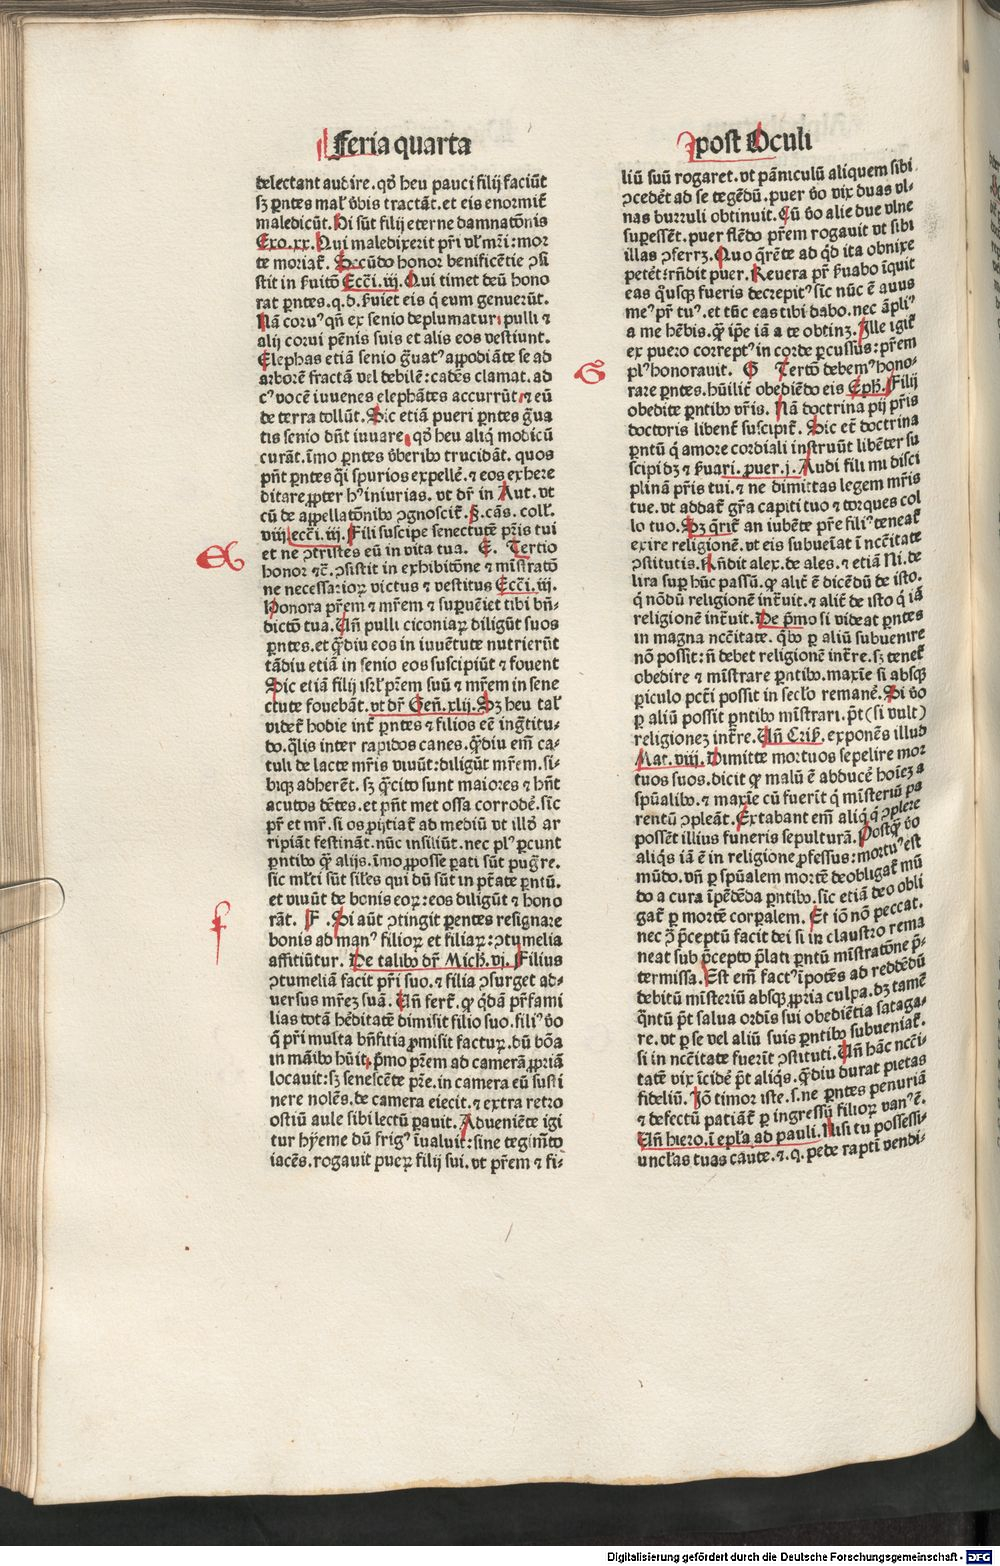 Feria quarta
post Oculi
delectant audire. qđ heu pauci filij faciũt
sꝫ ꝑntes mal ꝟbis tractãt. et eis enormit̃
maledicũt. Hi sũt filij eterne damnatõnis
Exo. xx. Qui maledixerit pr̃i vl̓ mr̃i: mor
te moriat̃. Secũdo honor benificẽtie ↄsi
stit in ẜuitõ Ecci. iij. Qui timet deũ hono
rat ꝑntes. q. d. ẜuiet eis q̇ eum genuerũt.
Nã coruꝰ qñ ex senio deplumatur, pulli ⁊
alij corui pẽnis suis et alis eos vestiunt.
Elephas etiã senio g̃uatꝰ aꝓdiãte se ad
arborẽ fractã vel debilẽ: cadẽs clamat. ad
cꝰ vocẽ iuuenes elephãtes accurrũt, ⁊ eũ
de terra tollũt. Sic etiã pueri ꝑntes g̃ua
tis senio dñt iuuare, qđ heu aliq̇ modicũ
curãt. ĩmo ꝑntes ꝟberibꝰ trucidãt. quos
pñt ꝑntes q̃i spurios expellẽ. ⁊ eos exhere
ditare ꝓpter hꝰ iniurias. vt dr̃ in Aut. vt
cũ de appellatõnibꝰ ↄgnoscit̃. §. cãs. coll̓.
viij. ecci. iij. Fili suscipe senectutẽ pr̃is tui
et ne ↄtristes eũ in vita tua. E. Tertio
honor ⁊c̃. ↄsistit in exhibitõne ⁊ mĩstratõ
ne necessarioꝝ victus ⁊ vestitus Ecci. iij.
Honora pr̃em ⁊ mr̃em ⁊ supuẽiet tibi bñ-
dictõ tua. Vñ pulli ciconiaꝝ diligũt suos
ꝑntes. et q̃diu eos in iuuẽtute nutrierũt
tãdiu etiã in senio eos suscipiũt ⁊ fouent
Sic etiã filij isrl̓ pr̃em suũ ⁊ mr̃em in sene
ctute fouebãt. vt dr̃ Geñ. xlij. Sꝫ heu tal̓
videt̃ hodie int̃ ꝑntes ⁊ filios eẽ ing̃titu-
do. q̃lis inter rapidos canes. q̃diu em̃ ca-
tuli de lacte mr̃is viuũt: diligũt mr̃em. si-
biqꝫ adherẽt. sꝫ q̃cito sunt maiores ⁊ hñt
acutos dẽtes. et pñt met ossa corrodẽ. sic
pr̃ et mr̃. si os ꝓijtiat̃ ad mediũ vt illđ ar
ripiãt festinãt. nũc insiliũt. nec plꝰ ꝑcunt
ꝑntibꝰ q̃ alijs. ĩmo ꝓposse ꝑati sũt pug̃re.
sic ml̓ti sũt sil̓es qui dũ sũt in ptãte ꝑntũ.
et viuũt de bonis eoꝝ: eos diligũt ⁊ hono
rãt. F. Si aũt ↄtingit ꝑentes resignare
bonis ad manꝰ filioꝝ et filiaꝝ: ↄtumelia
affitiũtur. De talibꝰ dr̃ Mich. vj. Filius
ↄtumeliã facit pr̃i suo. ⁊ filia ↄsurget ad-
uersus mr̃eꝫ suã. Vñ fert̃. qꝫ q̇dã pr̃fami
lias totã hẽditatẽ dimisit filio suo. filiꝰ ꝟo
q̇ pr̃i multa bñfitia ꝓmisit factuꝝ. dũ bõa
in mãibꝰ hũit, pmo pr̃em ad camerã ꝓpriã
locauit: sꝫ senescẽte pr̃e. in camera eũ susti
nere nolẽs. de camera eiecit. ⁊ extra retro
ostiũ aule sibi lectũ ꝑauit. Adueniẽte igi
tur hyeme dũ frigꝰ ĩualuit: sine tegim̃to
iacẽs. rogauit pueꝝ filij sui. vt pr̃em ⁊ fi-
liũ suũ rogaret. vt pãniculũ aliquem sibi
ↄcedẽt ad se tegẽdũ. puer ꝟo vix duas vl-
nas burruli obtinuit. Cũ ꝟo alie due vlne
supessẽt. puer flẽdo pr̃em rogauit vt sibi
illas ↄferrꝫ. Quo q̃rẽte ad q̇d ita obnixe
petẽt: rñdit puer. Reuera pr̃ ẜuabo ĩquit
eas q̃usqꝫ fueris decrepitꝰ sic nũc ẽ auus
meꝰ pr̃ tuꝰ. et tũc eas tibi dabo. nec ãpliꝰ
a me hẽbis. qꝫ ip̃e iã a te obtinꝫ. Ille igit̃
ex puero correptꝰ in corde ꝑcussus: pr̃em
plꝰ honorauit. G Tertõ debemꝰ hono-
rare ꝑntes. hũilit̃ obediẽdo eis Eph̓. Filij
obedite ꝑntibꝰ vr̃is. Nã doctrina pij pr̃is
doctoris libent̃ suscipit̃. Sic et̃ doctrina
ꝑntũ q̇ amore cordiali instruũt libẽter su
scipi dꝫ ⁊ ẜuari. ꝓuer. j. Audi fili mi disci
plinã pr̃is tui. ⁊ ne dimittas legem mr̃is
tue. vt addat̃ gr̃a capiti tuo ⁊ torques col
lo tuo. Sꝫ q̃rit̃ an iubẽte pr̃e filiꝰ teneat̃
exire religionẽ. vt eis subueĩat ĩ ncẽitate
ↄstitutis. Rñdit alex. de ales. ⁊ etiã Ni. de
lira sup hũc passũ. qꝫ alit̃ ẽ dicẽdũ de isto.
q̇ nõdũ religionẽ int̃uit. ⁊ alit̃ de isto q̇ iã
religionẽ int̃uit. De pmo si videat ꝑntes
in magna ncẽitate. qbꝰ ꝑ aliũ subuenire
nõ possit: ñ debet religionẽ int̃re. sꝫ tenet̃
obedire ⁊ mĩstrare ꝑntibꝰ. maxĩe si absqꝫ
ꝑiculo pcti possit in seclo remanẽ. Si ꝟo
ꝑ aliũ possit ꝑntibꝰ mĩstrari. pt̃ (si vult)
religioneꝫ int̃re. Vñ Criß. exponẽs illud
Mat. viij. Dimitte mortuos sepelire mor
tuos suos. dicit qꝫ malũ ẽ abducẽ hoĩeꝫ a
spũalibꝰ. ⁊ maxĩe cũ fuerĩt q̇ mĩsteriũ pa
rentũ ↄpleãt. Extabant em̃ aliq̇ q̇ ↄplere
possẽt illius funeris sepulturã. Postq̃ ꝟo
aliq̇s iã ẽ in religione ꝓfessus: mortuꝰ est
mũdo. vñ ꝑ spũalem mortẽ deobligat̃ mũ
do a cura ĩpẽdẽda ꝑntibꝰ. sic etiã deo obli
gat̃ ꝑ mortẽ corꝑalem. Et iõ nõ peccat.
nec ↄ̃ pceptũ facit dei si in claustro rema
neat sub pcepto plati ꝑntũ mĩstratõne p̃-
termissa. Est em̃ factꝰ ĩpotẽs ad reddẽdũ
debitũ mĩsteriũ absqꝫ ꝓpria culpa. dꝫ tamẽ
q̃ntũ pt̃ salua ordĩs sui obediẽtia sataga-
re. vt ꝑ se vel aliũ suis ꝑntibꝰ subueniat̃.
si in ncẽitate fuerĩt ↄstituti. Vñ hãc ncẽi-
tatẽ vix ĩcidẽ pt̃ aliq̇s. q̃diu durat pietas
fideliũ. Iõ timor iste. s. ne ꝑntes penuriã
⁊ defectũ patiãt̃ ꝑ ingressũ filioꝝ vanꝰ ẽ.
Vñ hiero. ĩ epl̓a ad pauli. Nisi tu possessi-
unclas tuas caute. ⁊. q. pede rapti vendi-
E
f
G
Digitalisierung gefördert durch die Deutsche Forschungsgemeinschaft - DFG